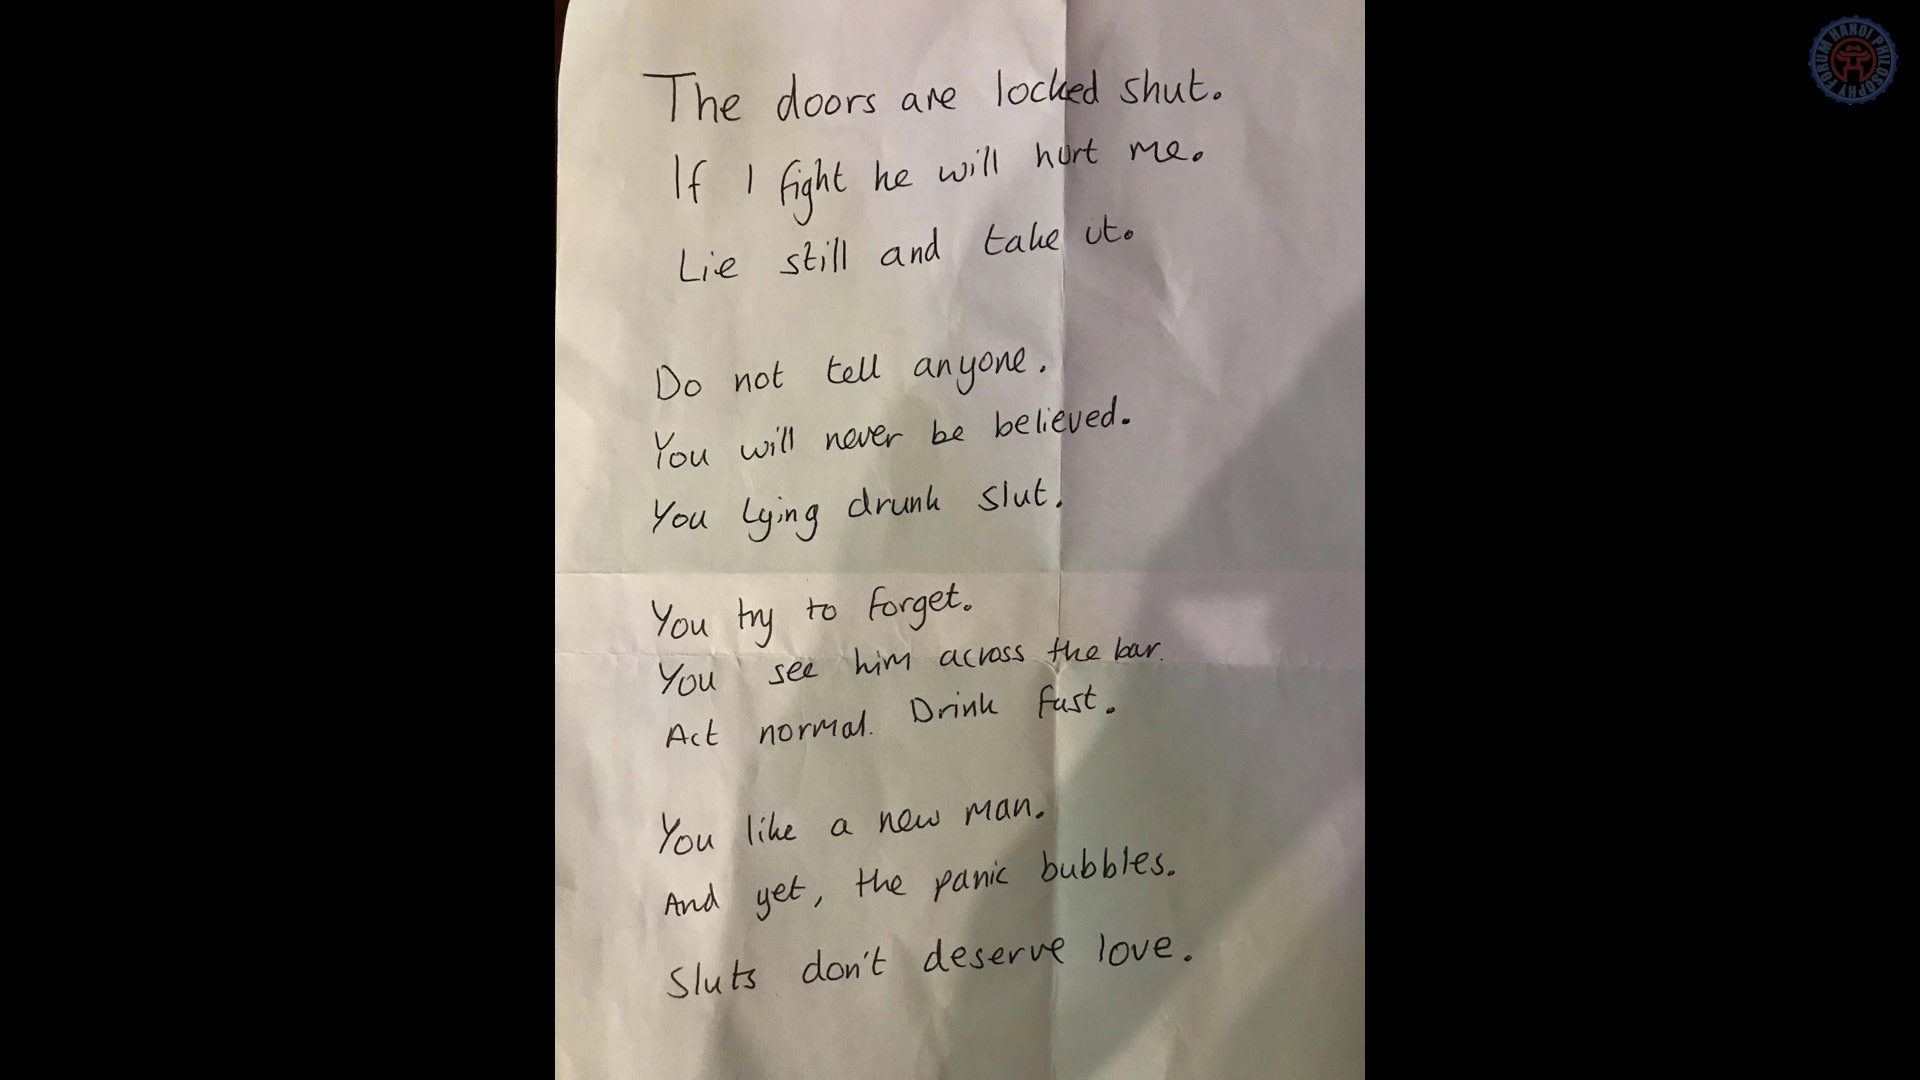 The doors are locked shut.
If I fight he will hurt me.
Lie still and take it.
Do not tell anyone.
You will never be believed.
You lying drunk slut.
You try to forget.
You see him across the bar.
Act normal. Drink fast.
You like a new man.
And yet, the panic bubbles.
Sluts don't deserve love.
FORUM HANOI PHILOSOPHY